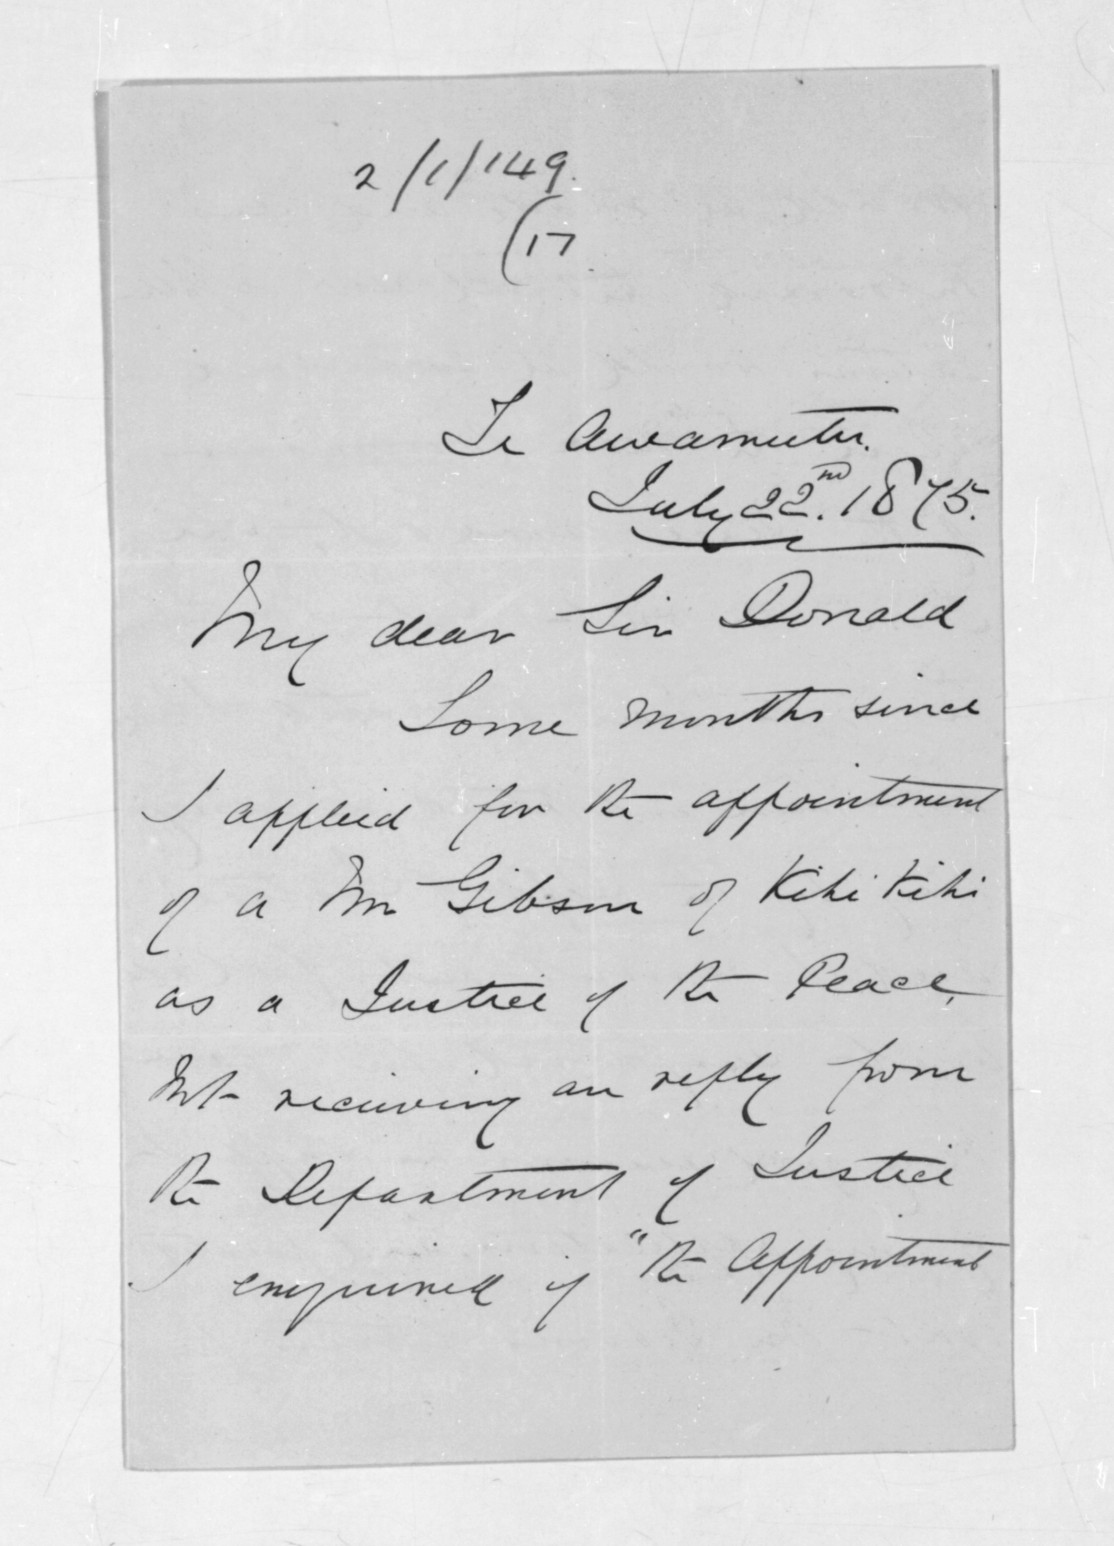 2/1/149.
(17
Te Awamutu.
July 22nd. 1875.
My dear Sir Donald
Some months since
I applied for the appointment
of a Mr Gibson of Kihi Kihi
as a Justice of the Peace,
Not receiving an reply from
the Department of Justice
I enquired if "the Appointment